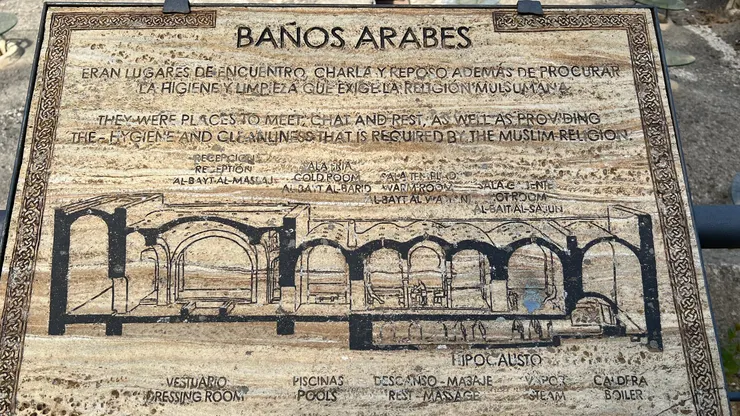 BAÑOS ARABES
ERAN LUGARES DE ENCUENTRO, CHARLA Y REPOSO ADEMÁS DE PROCURAR
LA HIGIENE Y LIMPIEZA QUE EXIGE LA RELIGIÓN MULSUMANA.
THEY WERE PLACES TO MEET, CHAT AND REST, AS WELL AS PROVIDING
THE - HYGIENE AND CLEANLINESS THAT IS REQUIRED BY THE MUSLIM RELIGION.
RECEPCIÓN
RECEPTION
AL-BAYT-AL-MASLAJ
SALA FRIA
COLD ROOM
AL-BAIT-AL-BARID
SALA TEMPLADO
WARM ROOM
AL-BAYT AL
SALA CALIENTE
HOT ROOM
AL-BAIT-AL-SAJUN
HIPOCAUSTO
VESTUARIO
DRESSING ROOM
PISCINAS
POOLS
DESCANSO - MASAJE
REST - MASSAGE
VAPOR
STEAM
CALDERA
BOILER